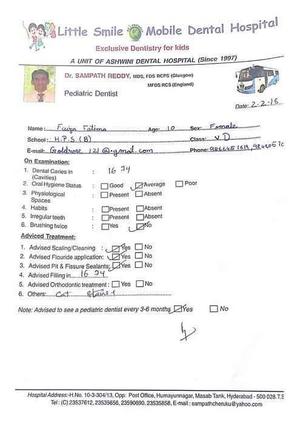 Little Smile Mobile Dental Hospital
Exclusive Dentistry for kids
A UNIT OF ASHWINI DENTAL HOSPITAL (Since 1997)
Dr. SAMPATH REDDY, MDS, FDS RCPS (Glasgow)
MFDS RCS (England)
Pediatric Dentist
Date: 2-2-15
Name: Fatima Age: 10 Sex: Female
School: H.P.S (B) Class: V D
E-mail: @gmail.com Phone:
On Examination:
1. Dental Caries in (Cavities) : 16
2. Oral Hygiene Status : Good Average Poor
3. Physiological Spaces : Present Absent
4. Habits : Present Absent
5. Irregular teeth : Present Absent
6. Brushing twice : Yes No
Adviced Treatment:
1. Advised Scaling/Cleaning : Yes No
2. Advised Flouride application : Yes No
3. Advised Pit & Fissure Sealants : Yes No
4. Advised Filling in 16
5. Advised Orthodontic treatment : Yes No
6. Others:
Note: Advised to see a pediatric dentist every 3-6 months Yes No
Hospital Address:-H.No. 10-3-304/13, Opp: Post Office, Humayunnagar, Masab Tank, Hyderabad - 500 028.T.S
Tel: (C) 23537612, 23535656, 23590690, 23535858, E-mail : sampathcheruku@yahoo.com